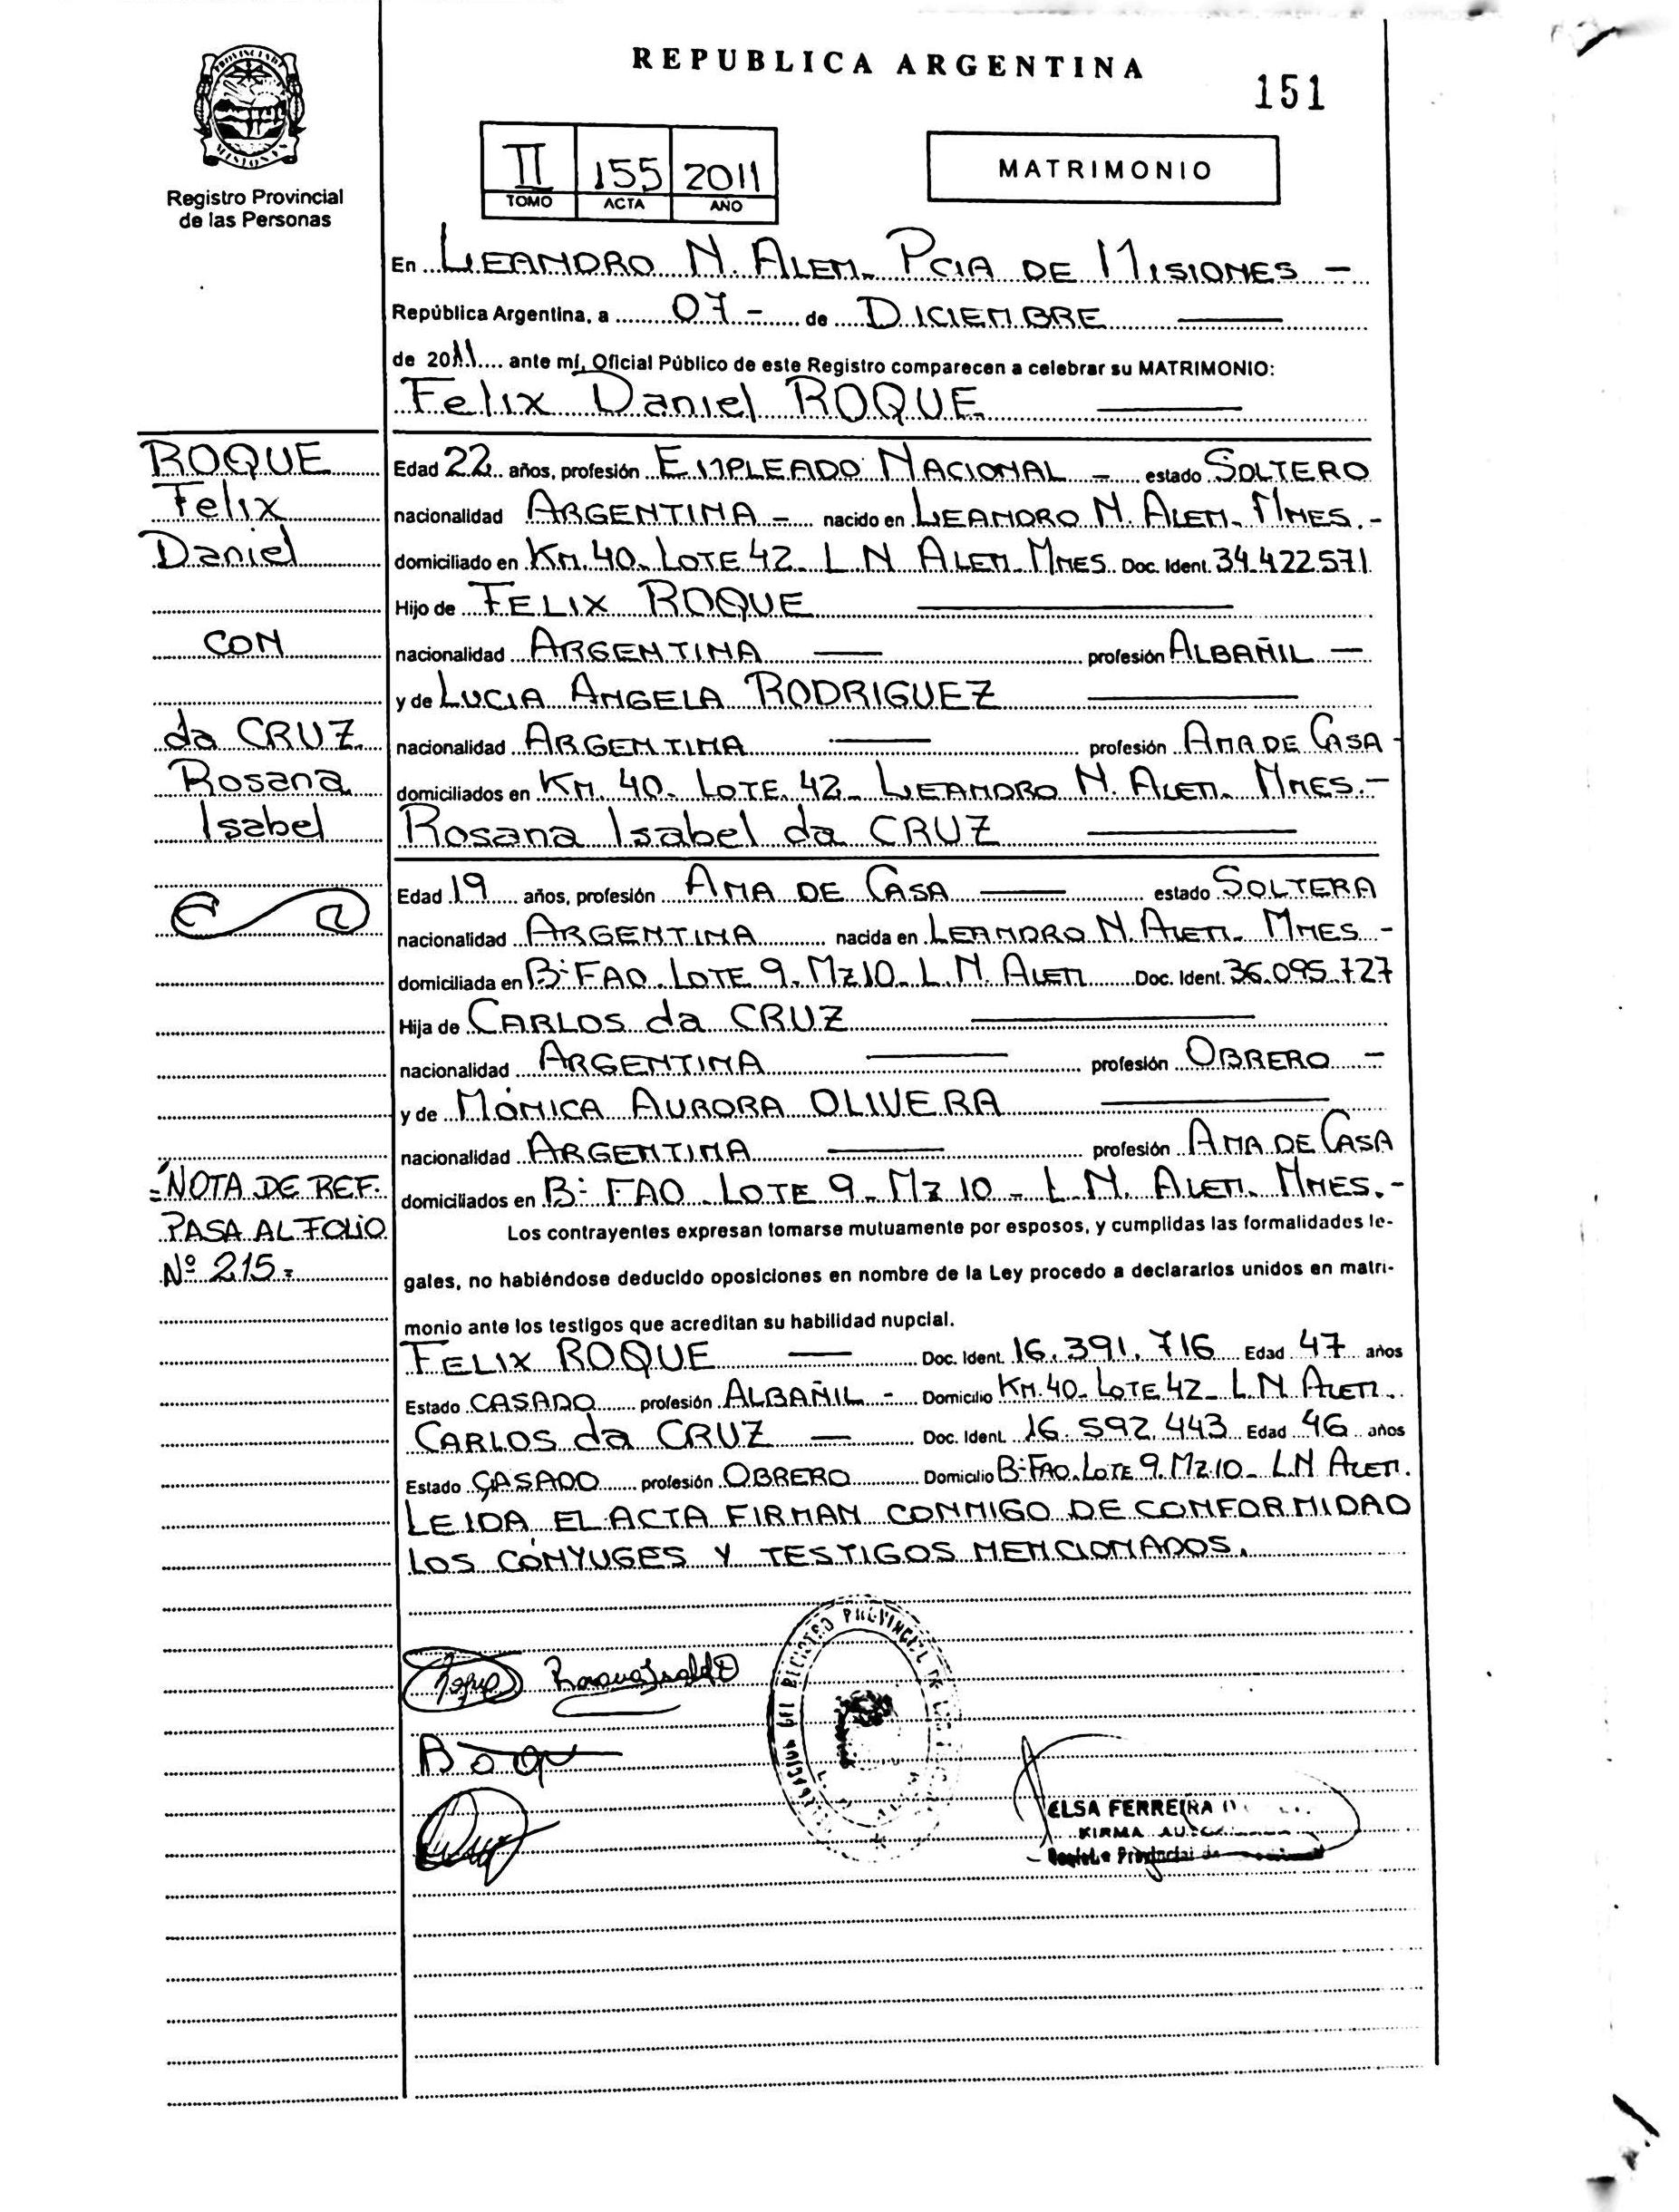 REPUBLICA ARGENTINA
151
PROVINCIA DE
MISIONES
Registro Provincial
de las Personas
II 155 2011
TOMO ACTA AÑO
MATRIMONIO
En LEANDRO N. ALEM. PCIA DE MISIONES -
República Argentina, a 07 - de DICIEMBRE
de 2011 ante mí, Oficial Público de este Registro comparecen a celebrar su MATRIMONIO:
Felix Daniel ROQUE
ROQUE
Felix
Daniel
CON
da CRUZ
Rosana
Isabel
Edad 22 años, profesión EMPLEADO NACIONAL - estado SOLTERO
nacionalidad ARGENTINA - nacido en LEANDRO N. ALEM. MNES. -
domiciliado en KM. 40. LOTE 42. L N ALEM. MNES. Doc. Ident. 34.422.571
Hijo de FELIX ROQUE
nacionalidad ARGENTINA profesión ALBAÑIL -
y de LUCIA ANGELA RODRIGUEZ
nacionalidad ARGENTINA profesión AMA DE CASA -
domiciliados en KM. 40. LOTE 42. LEANDRO N. ALEM. MNES. -
Rosana Isabel da CRUZ
Edad 19 años, profesión AMA DE CASA estado SOLTERA
nacionalidad ARGENTINA nacida en LEANDRO N. ALEM. MNES -
domiciliada en Bº FAO. LOTE 9. MZ 10. L. N. ALEM Doc. Ident. 36.095.727
Hija de CARLOS da CRUZ
nacionalidad ARGENTINA profesión OBRERO -
y de MÓNICA AURORA OLIVERA
nacionalidad ARGENTINA profesión AMA DE CASA
domiciliados en Bº FAO. LOTE 9. MZ 10 - L. N. ALEM. MNES. -
NOTA DE REF.
PASA AL FOLIO
Nº 215.
Los contrayentes expresan tomarse mutuamente por esposos, y cumplidas las formalidades le-
gales, no habiéndose deducido oposiciones en nombre de la Ley procedo a declararlos unidos en matri-
monio ante los testigos que acreditan su habilidad nupcial.
FELIX ROQUE Doc. Ident. 16.391.716 Edad 47 años
Estado CASADO profesión ALBAÑIL - Domicilio KM. 40. LOTE 42. L N ALEM.
CARLOS da CRUZ Doc. Ident. 16.592.443 Edad 46 años
Estado CASADO profesión OBRERO Domicilio Bº FAO. LOTE 9. MZ 10. L N ALEM.
LEIDA EL ACTA FIRMAN CONMIGO DE CONFORMIDAD
LOS CÓNYUGES Y TESTIGOS MENCIONADOS.
DEL REGISTRO PROVINCIAL DE
ELSA FERREIRA
FIRMA
Provincial de